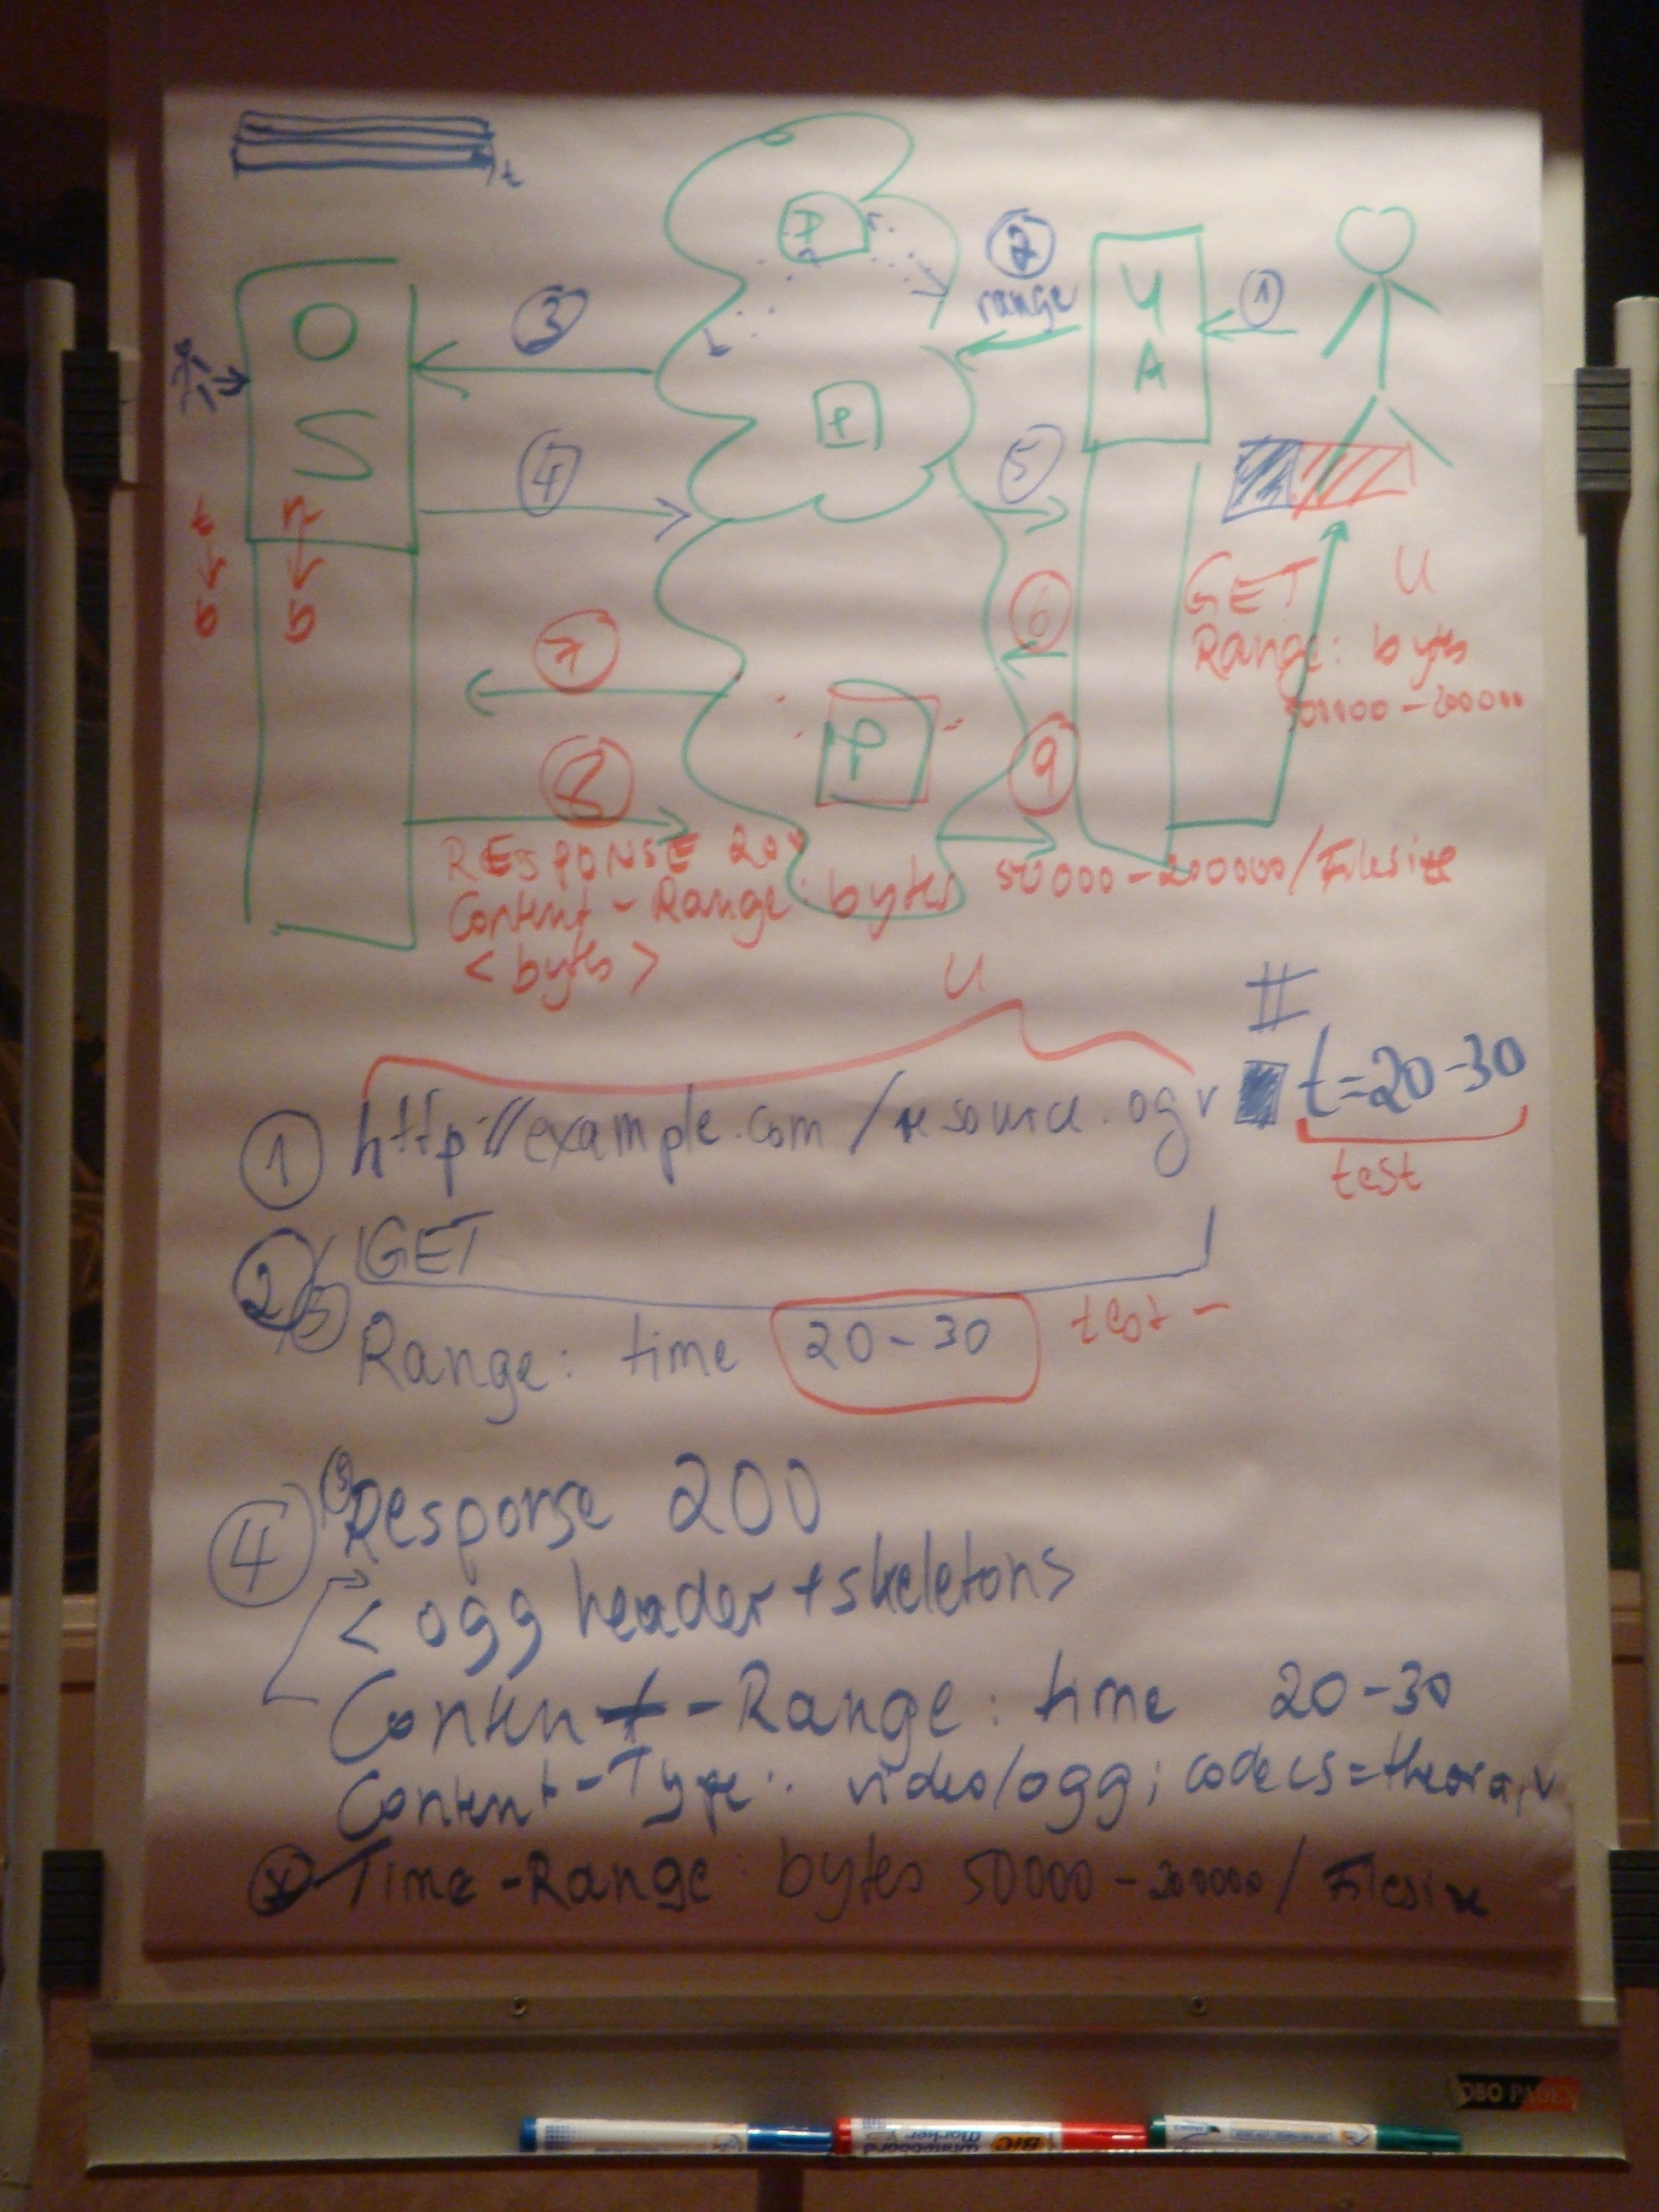 t
P
2
range
U
A
1
3
O
S
P
4
5
t
b
b
7
6
GET U
Range: bytes
P
8
9
RESPONSE
Content-Range: bytes 50000-200000/Filesize
<bytes>
U
#
1 http://example.com/resource.ogv t=20-30
test
2/3 GET
Range: time 20-30 test
4 Response 200
< ogg header + skeletons
Content-Range: time 20-30
Content-Type: video/ogg; codecs=theora, v
Time-Range: bytes 50000-200000/Filesize
BIC